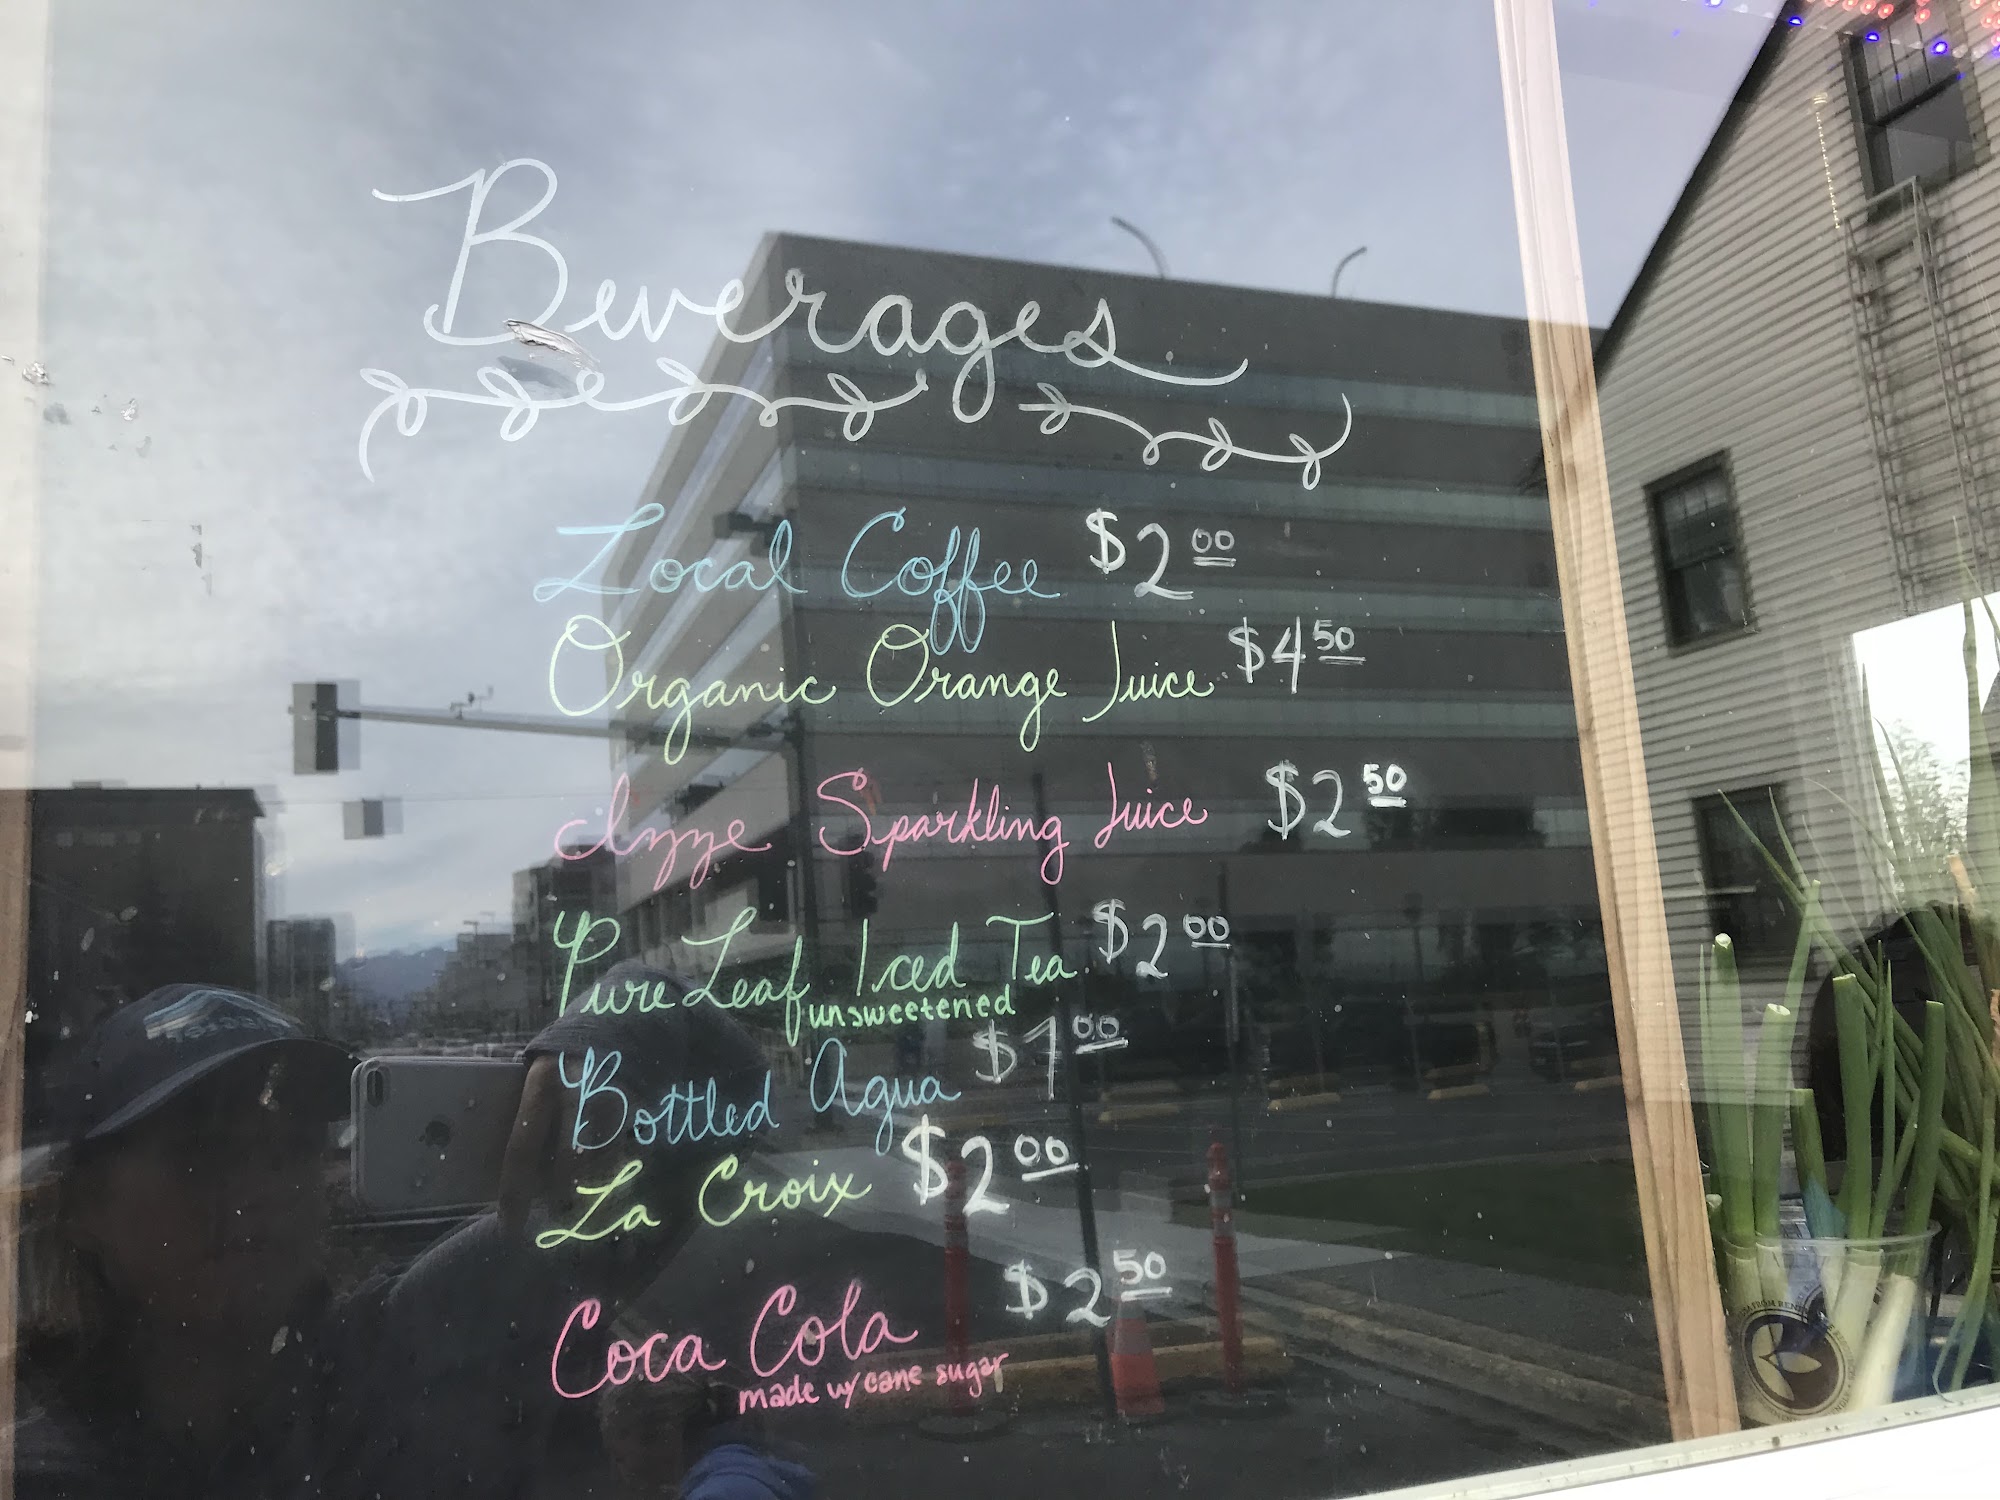 Beverages
Local Coffee $2.00
Organic Orange Juice $4.50
Izze Sparkling Juice $2.50
Pure Leaf Iced Tea $2.00
unsweetened
Bottled Agua $1.00
La Croix $2.00
Coca Cola $2.50
made w/ cane sugar